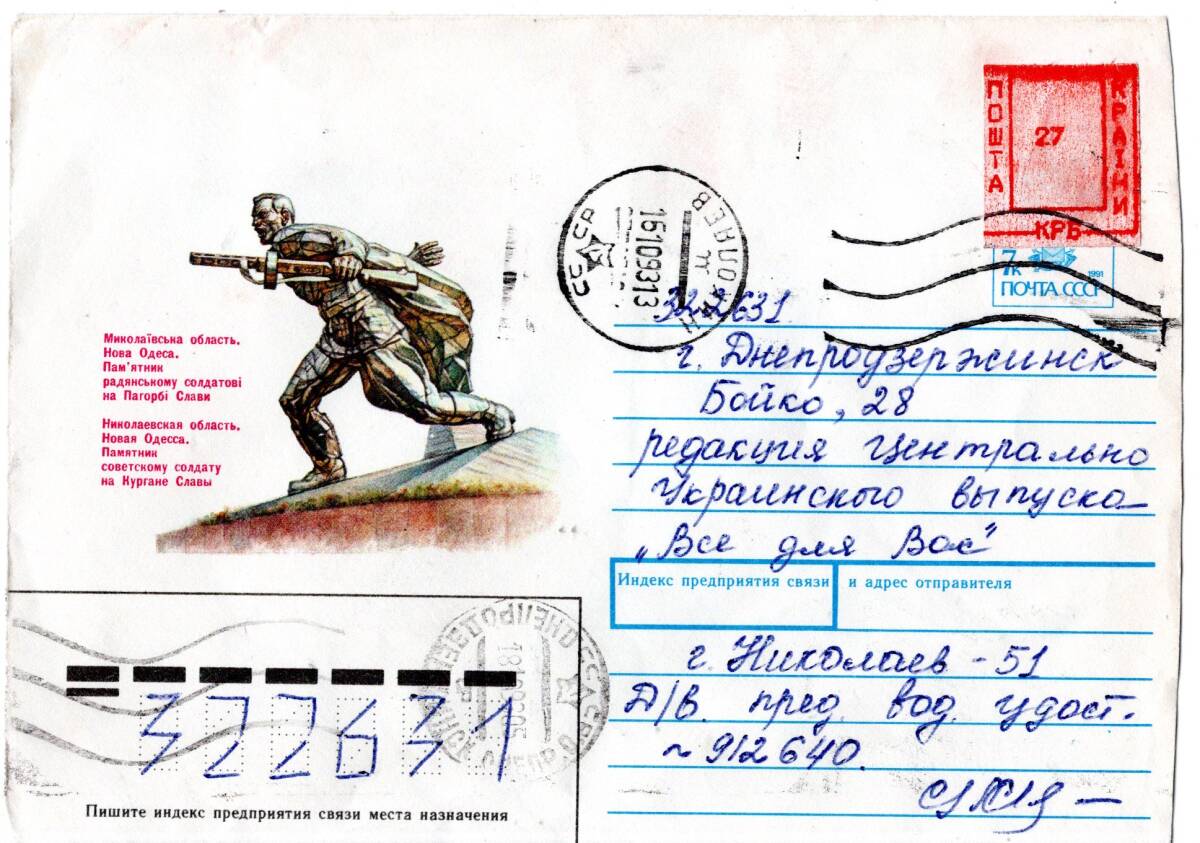 ПОШТА
КРАЇНИ
27
КРБ
7к
1991
ПОЧТА СССР
НИКОЛАЕВ
СССР
15109313
Миколаївська область.
Нова Одеса.
Пам'ятник
радянському солдатові
на Пагорбі Слави
Николаевская область.
Новая Одесса.
Памятник
советскому солдату
на Кургане Славы
322631
г. Днепродзержинск
Бойко, 28
редакция Центрально
Украинского выпуска
„Все для Вас"
Индекс предприятия связи и адрес отправителя
г. Николаев - 51
Д/В. пред. вод. удост.
~ 912640.
322631
Пишите индекс предприятия связи места назначения